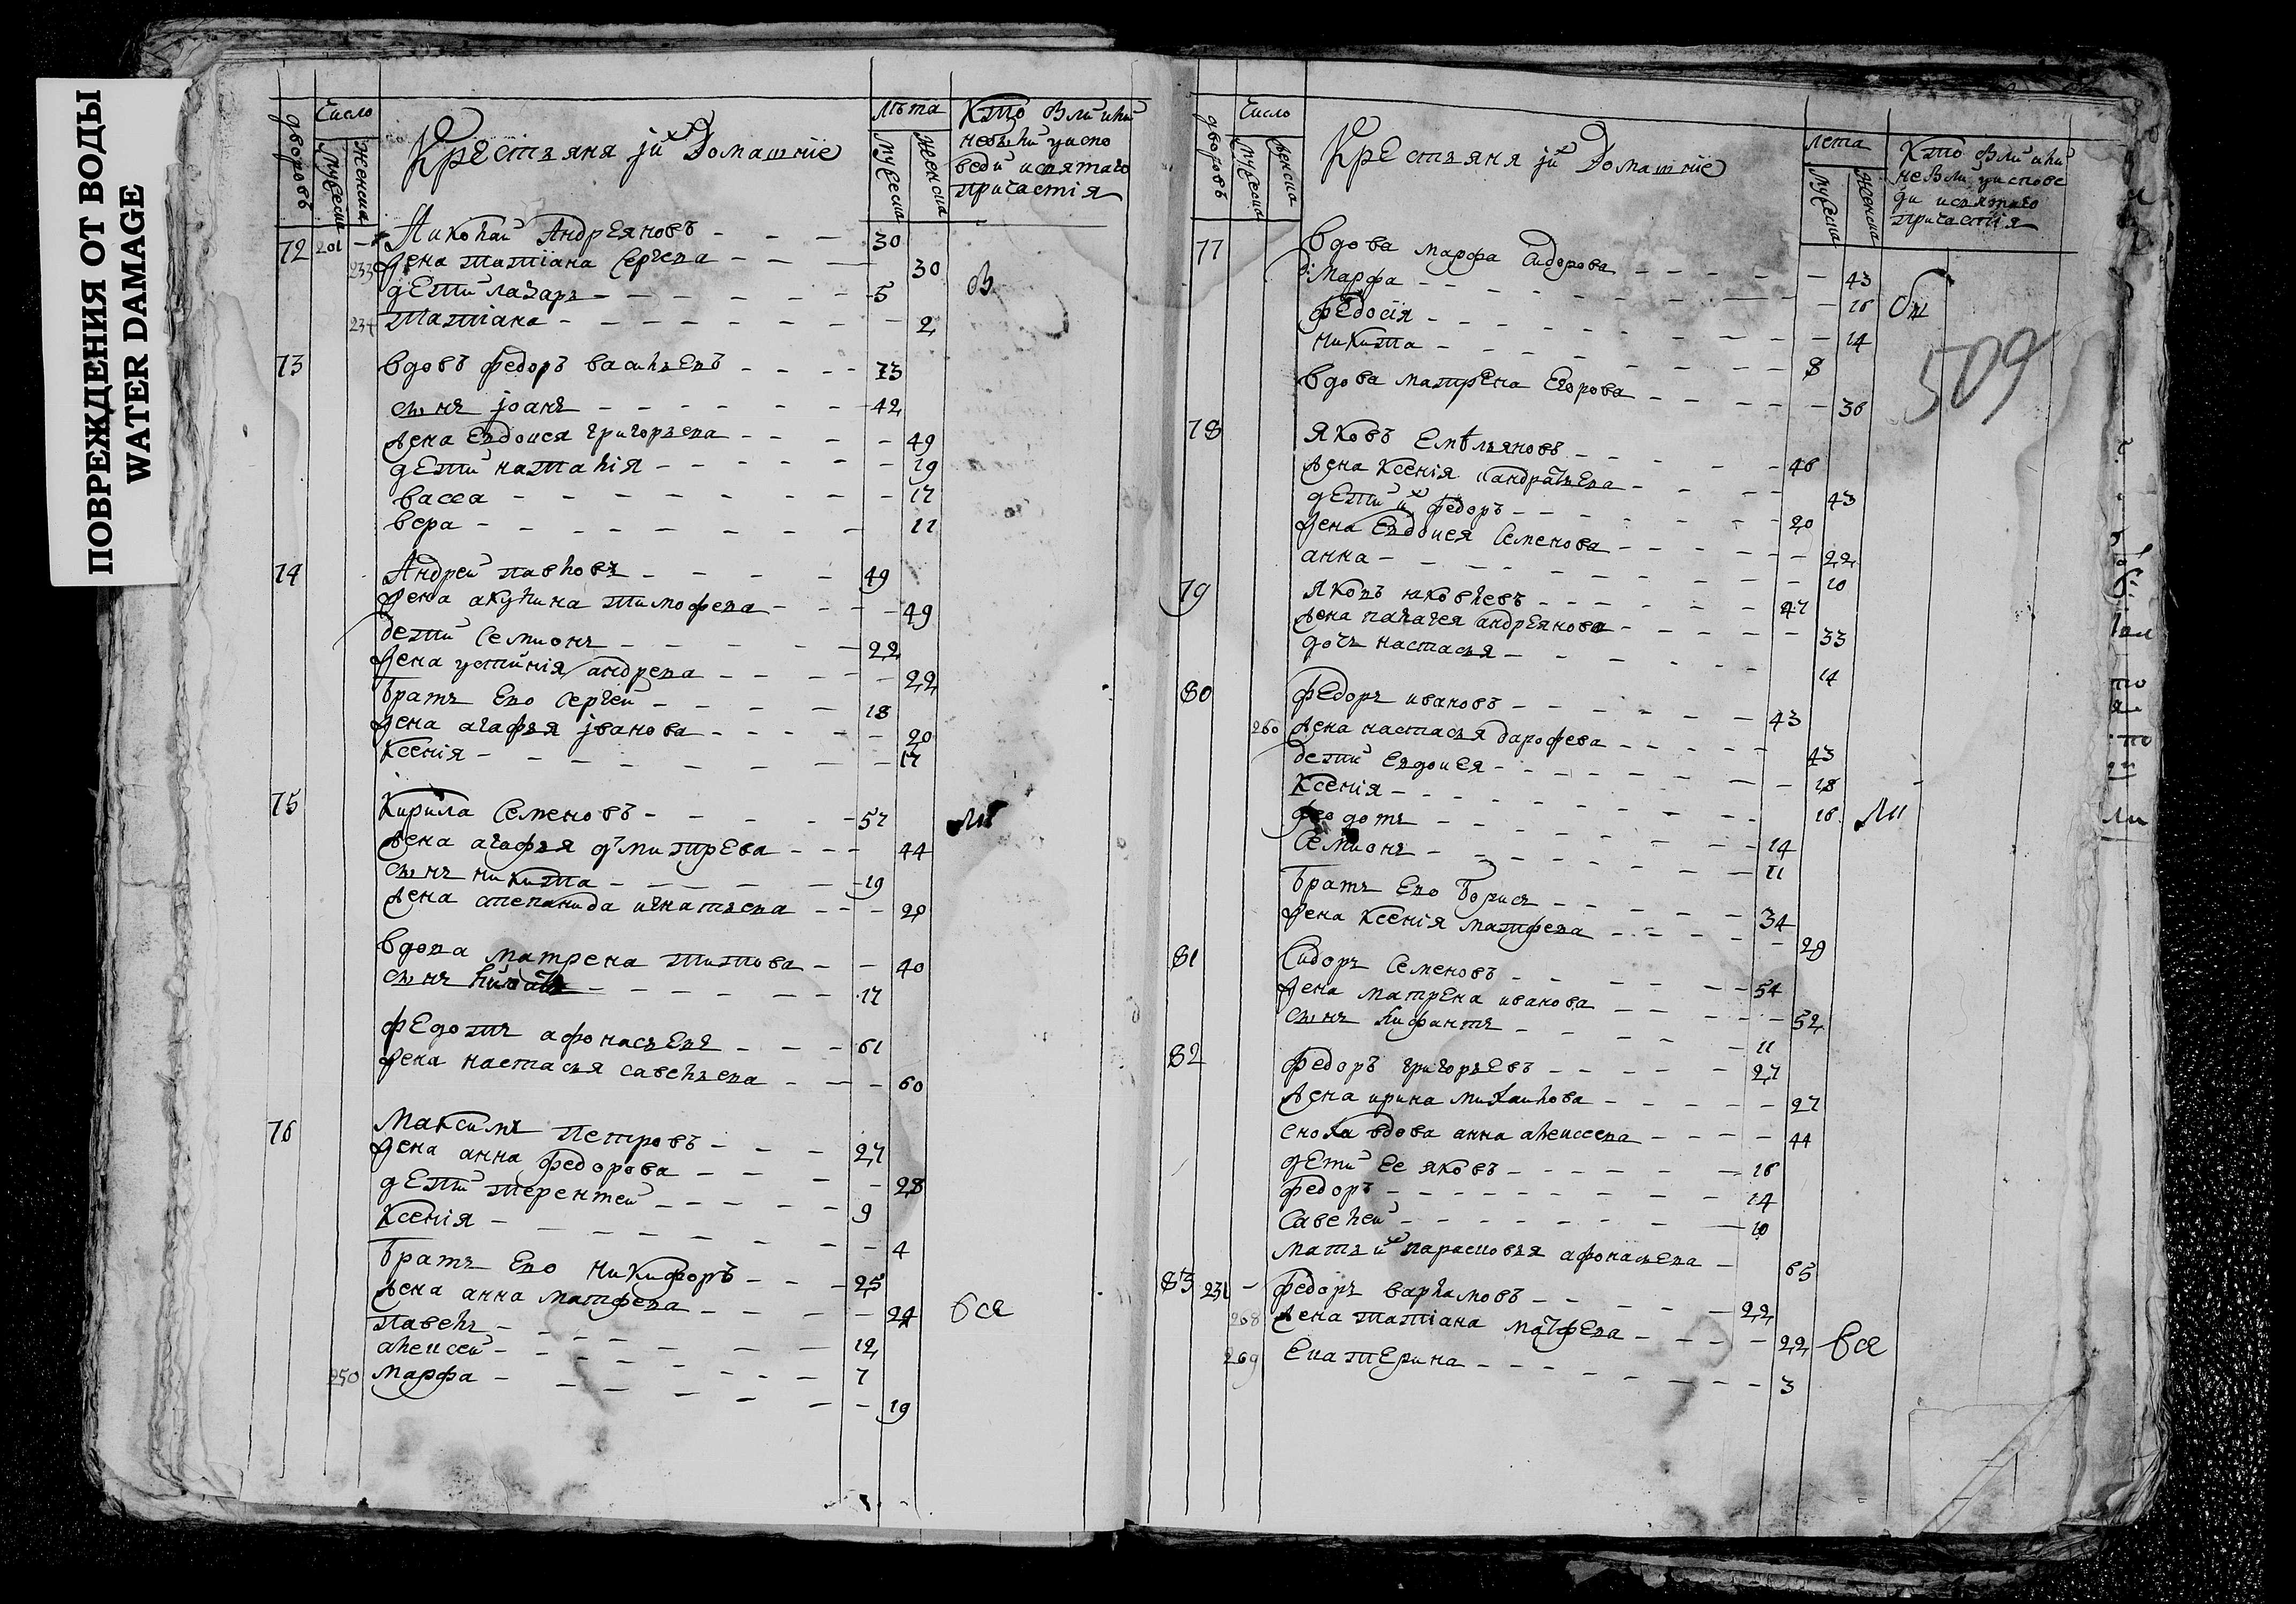 ПОВРЕЖДЕНИЯ ОТ ВОДЫ
WATER DAMAGE
дворовъ
Число
мужеска
женска
Крестьяня и домашніе
лѣта
мужеска
женска
причастія
72 201 Николаи Андреяновъ 30
233 жена татіана сергева 30
дети лазарь 5
234 татіана 2
73 вдовъ федоръ васильевъ 73
сынъ іоанъ 42
жена евдокея григорьева 49
дети наталія 19
васса 17
вера 11
74 Андреи павловъ 49
жена акулина тимофева 49
дети семионъ 22
жена устинія андрева 22
братъ ево сергеи 18
жена агафья іванова 20
ксенія 17
75 Кирила семеновъ 57
жена агафья дмитрева 44
сынъ никита 19
жена степанида игнатьева 20
вдова матрена титова 40
сынъ 17
федотъ афонасьевъ 61
жена настасья савельева 60
76 Максимъ петровъ 27
жена анна федорова 28
дети терентеи 9
ксенія 4
братъ ево никифоръ 25
жена анна матфева 24
все
павелъ 12
алексеи 7
250 марфа 19
дворовъ
Число
мужеска
женска
Крестьяня и домашніе
лета
мужеска
женска
причастія
509
77 вдова марфа сидорова 43
марфа 16
федосія 14
никита 8
вдова матрена егорова 36
78 яковъ емѣльяновъ 46
жена ксенія кандратьева 43
дети их федоръ 20
жена евдокея семенова 22
анна 10
79 яковъ яковлевъ 47
жена палагея андреянова 33
дочь настасья 14
80 федоръ ивановъ 43
260 жена настасья дарофева 43
дети евдокея 18
ксенія 16
федотъ 14
семионъ 11
братъ ево борисъ 34
жена ксенія матфева 29
81 Сидоръ семеновъ 54
жена матрена иванова 52
сынъ 11
82 федоръ григорьевъ 27
жена ирина михаилова 27
сноха вдова анна алексеева 44
дети ее яковъ 16
федоръ 14
савелеи 10
мать их парасковья афонасьева 65
83 231 федоръ варламовъ 22
268 жена татіана матфева 22
все
269 екатерина 3